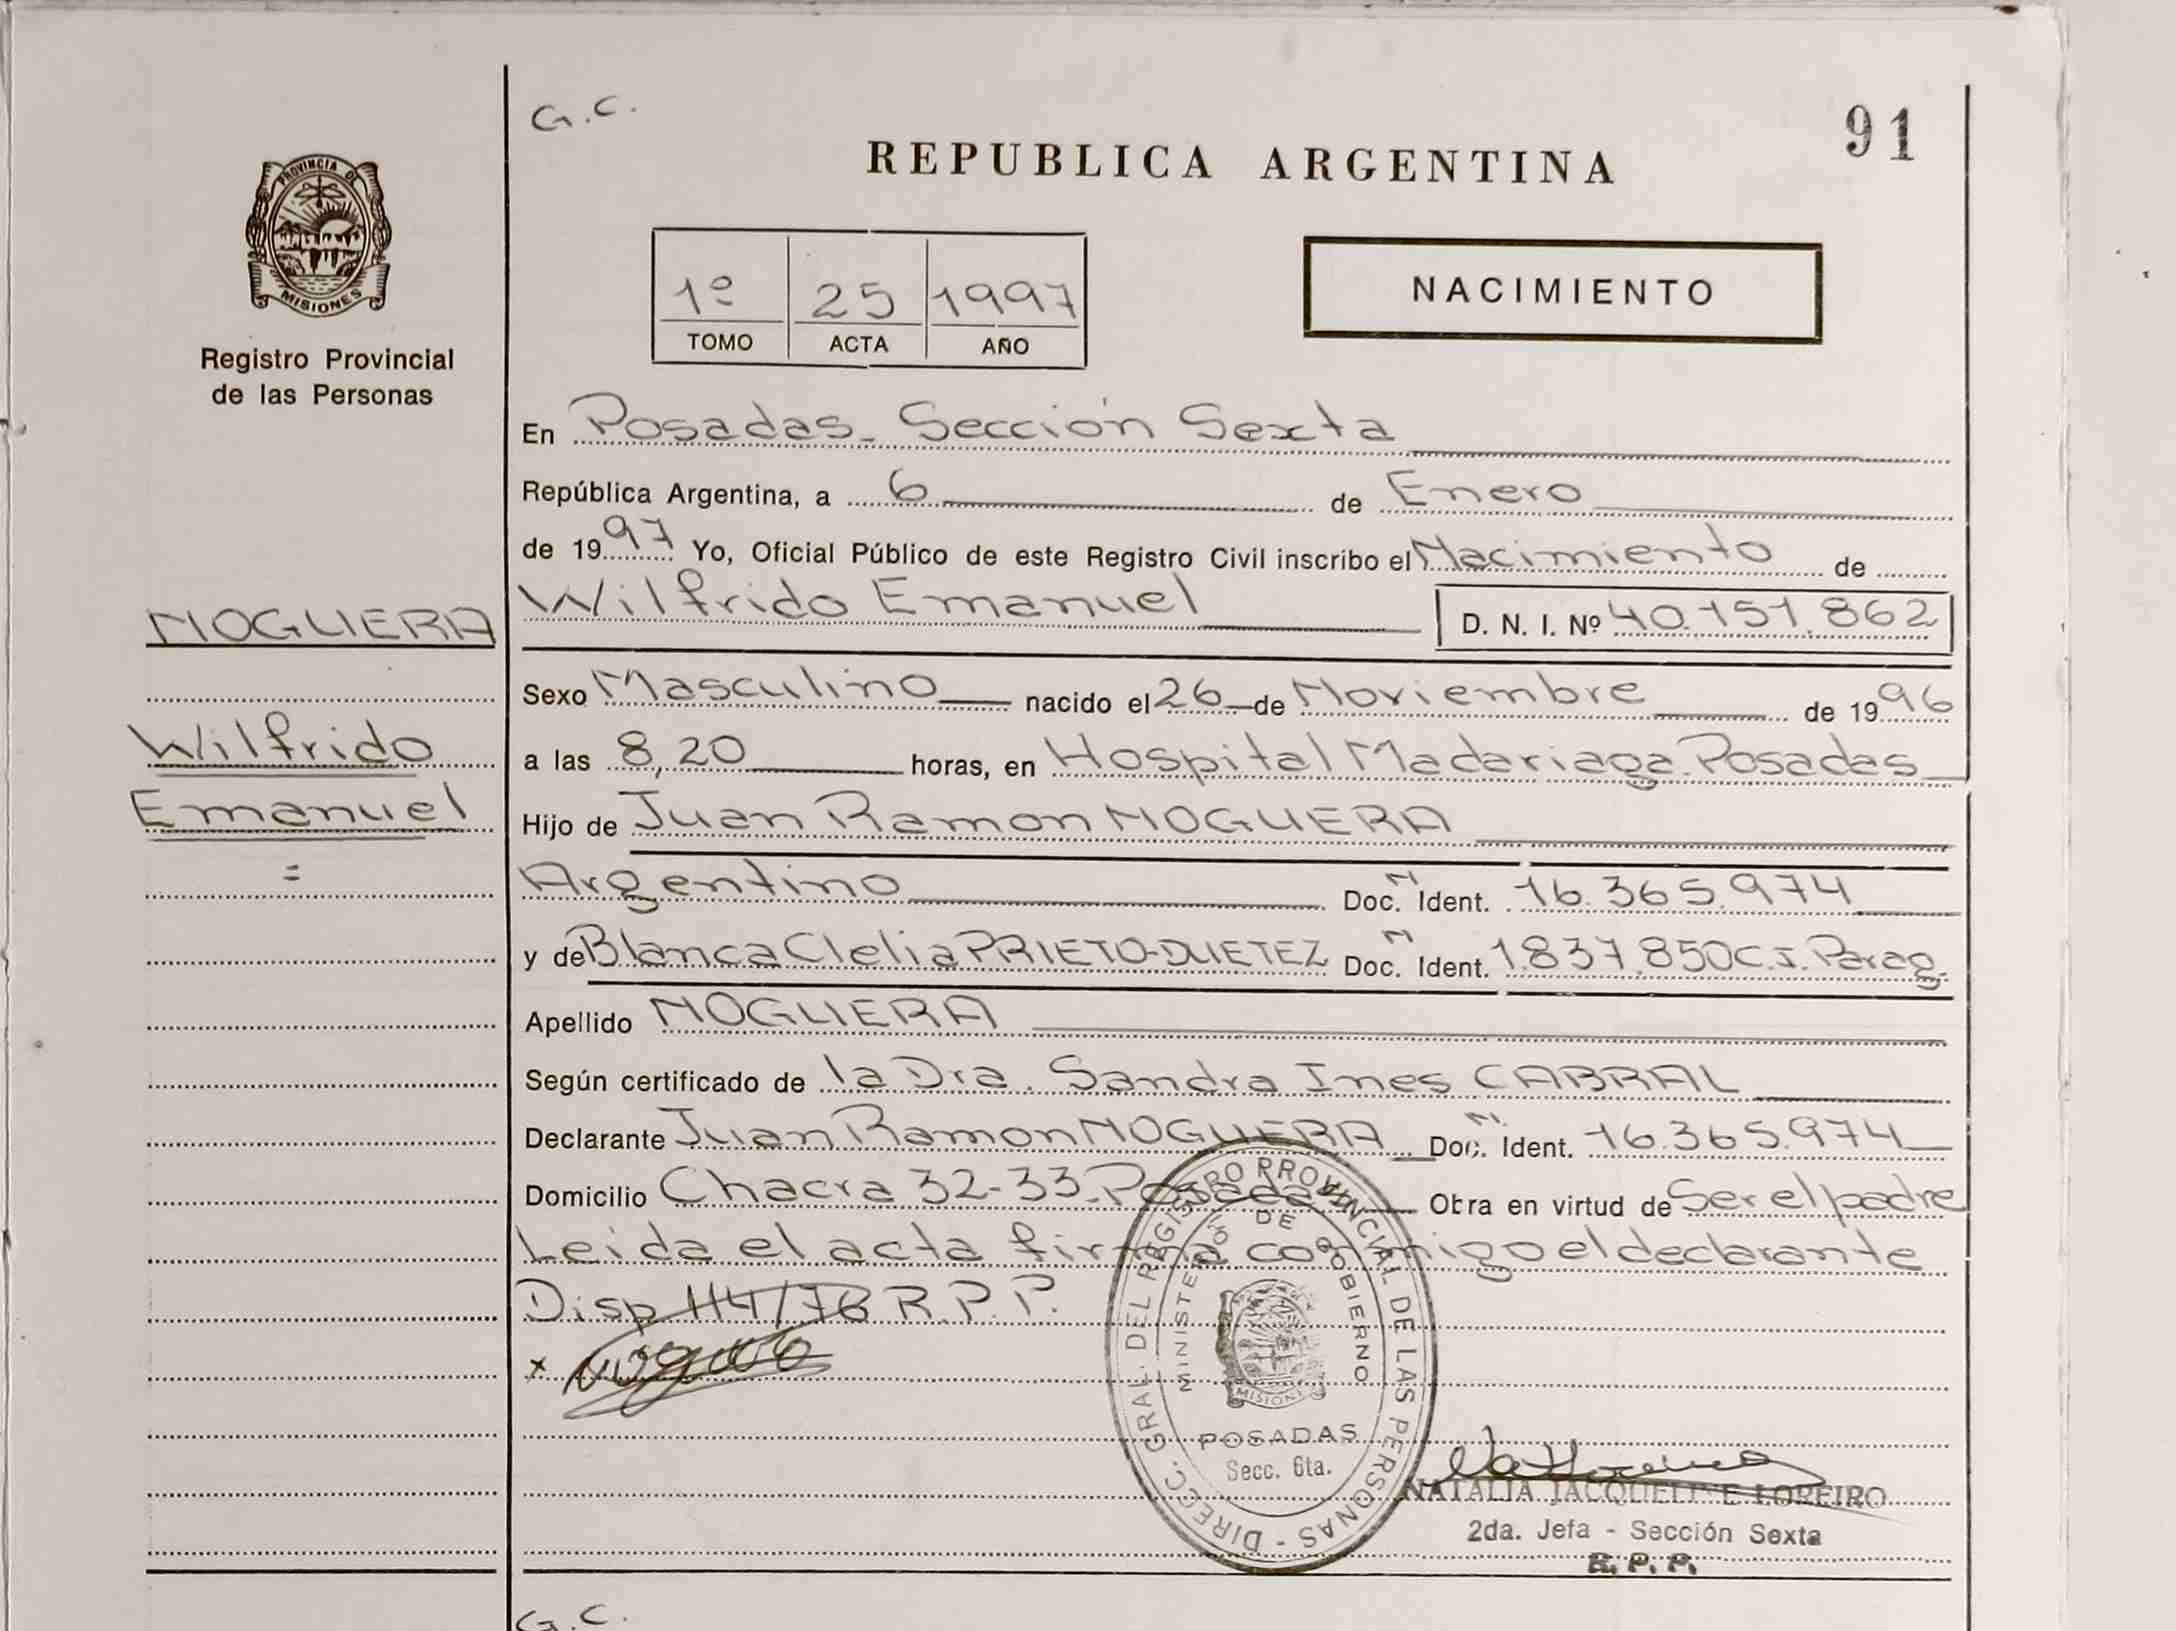 G.C.
91
REPUBLICA ARGENTINA
PROVINCIA DE
MISIONES
Registro Provincial
de las Personas
1º 25 1997
TOMO ACTA AÑO
NACIMIENTO
En Posadas - Sección Sexta
República Argentina, a 6 de Enero
de 1997 Yo, Oficial Público de este Registro Civil inscribo el Nacimiento de
NOGUERA
Wilfrido Emanuel D. N. I. Nº 40.151.862
Sexo Masculino nacido el 26 de Noviembre de 1996
Wilfrido
a las 8,20 horas, en Hospital Madariaga. Posadas
Emanuel
Hijo de Juan Ramon NOGUERA
=
Argentino Doc. N. Ident. 16.365.974
y de Blanca Clelia PRIETO-DUETEZ Doc. N. Ident. 1.837.850 C.I. Parag.
Apellido NOGUERA
Según certificado de la Dra. Sandra Ines CABRAL
Declarante Juan Ramon NOGUERA Doc. N. Ident. 16.365.974
Domicilio Chacra 32-33. Posadas Obra en virtud de Ser el padre
Leida el acta firma conmigo el declarante
Disp 114/76 R.P.P.
x
DIRECC. GRAL. DEL REGISTRO PROVINCIAL DE LAS PERSONAS -
MINISTERIO DE GOBIERNO
MISIONES
POSADAS
Secc. 6ta.
NATALIA JACQUELINE LOREIRO
2da. Jefa - Sección Sexta
R. P. P.
G.C.